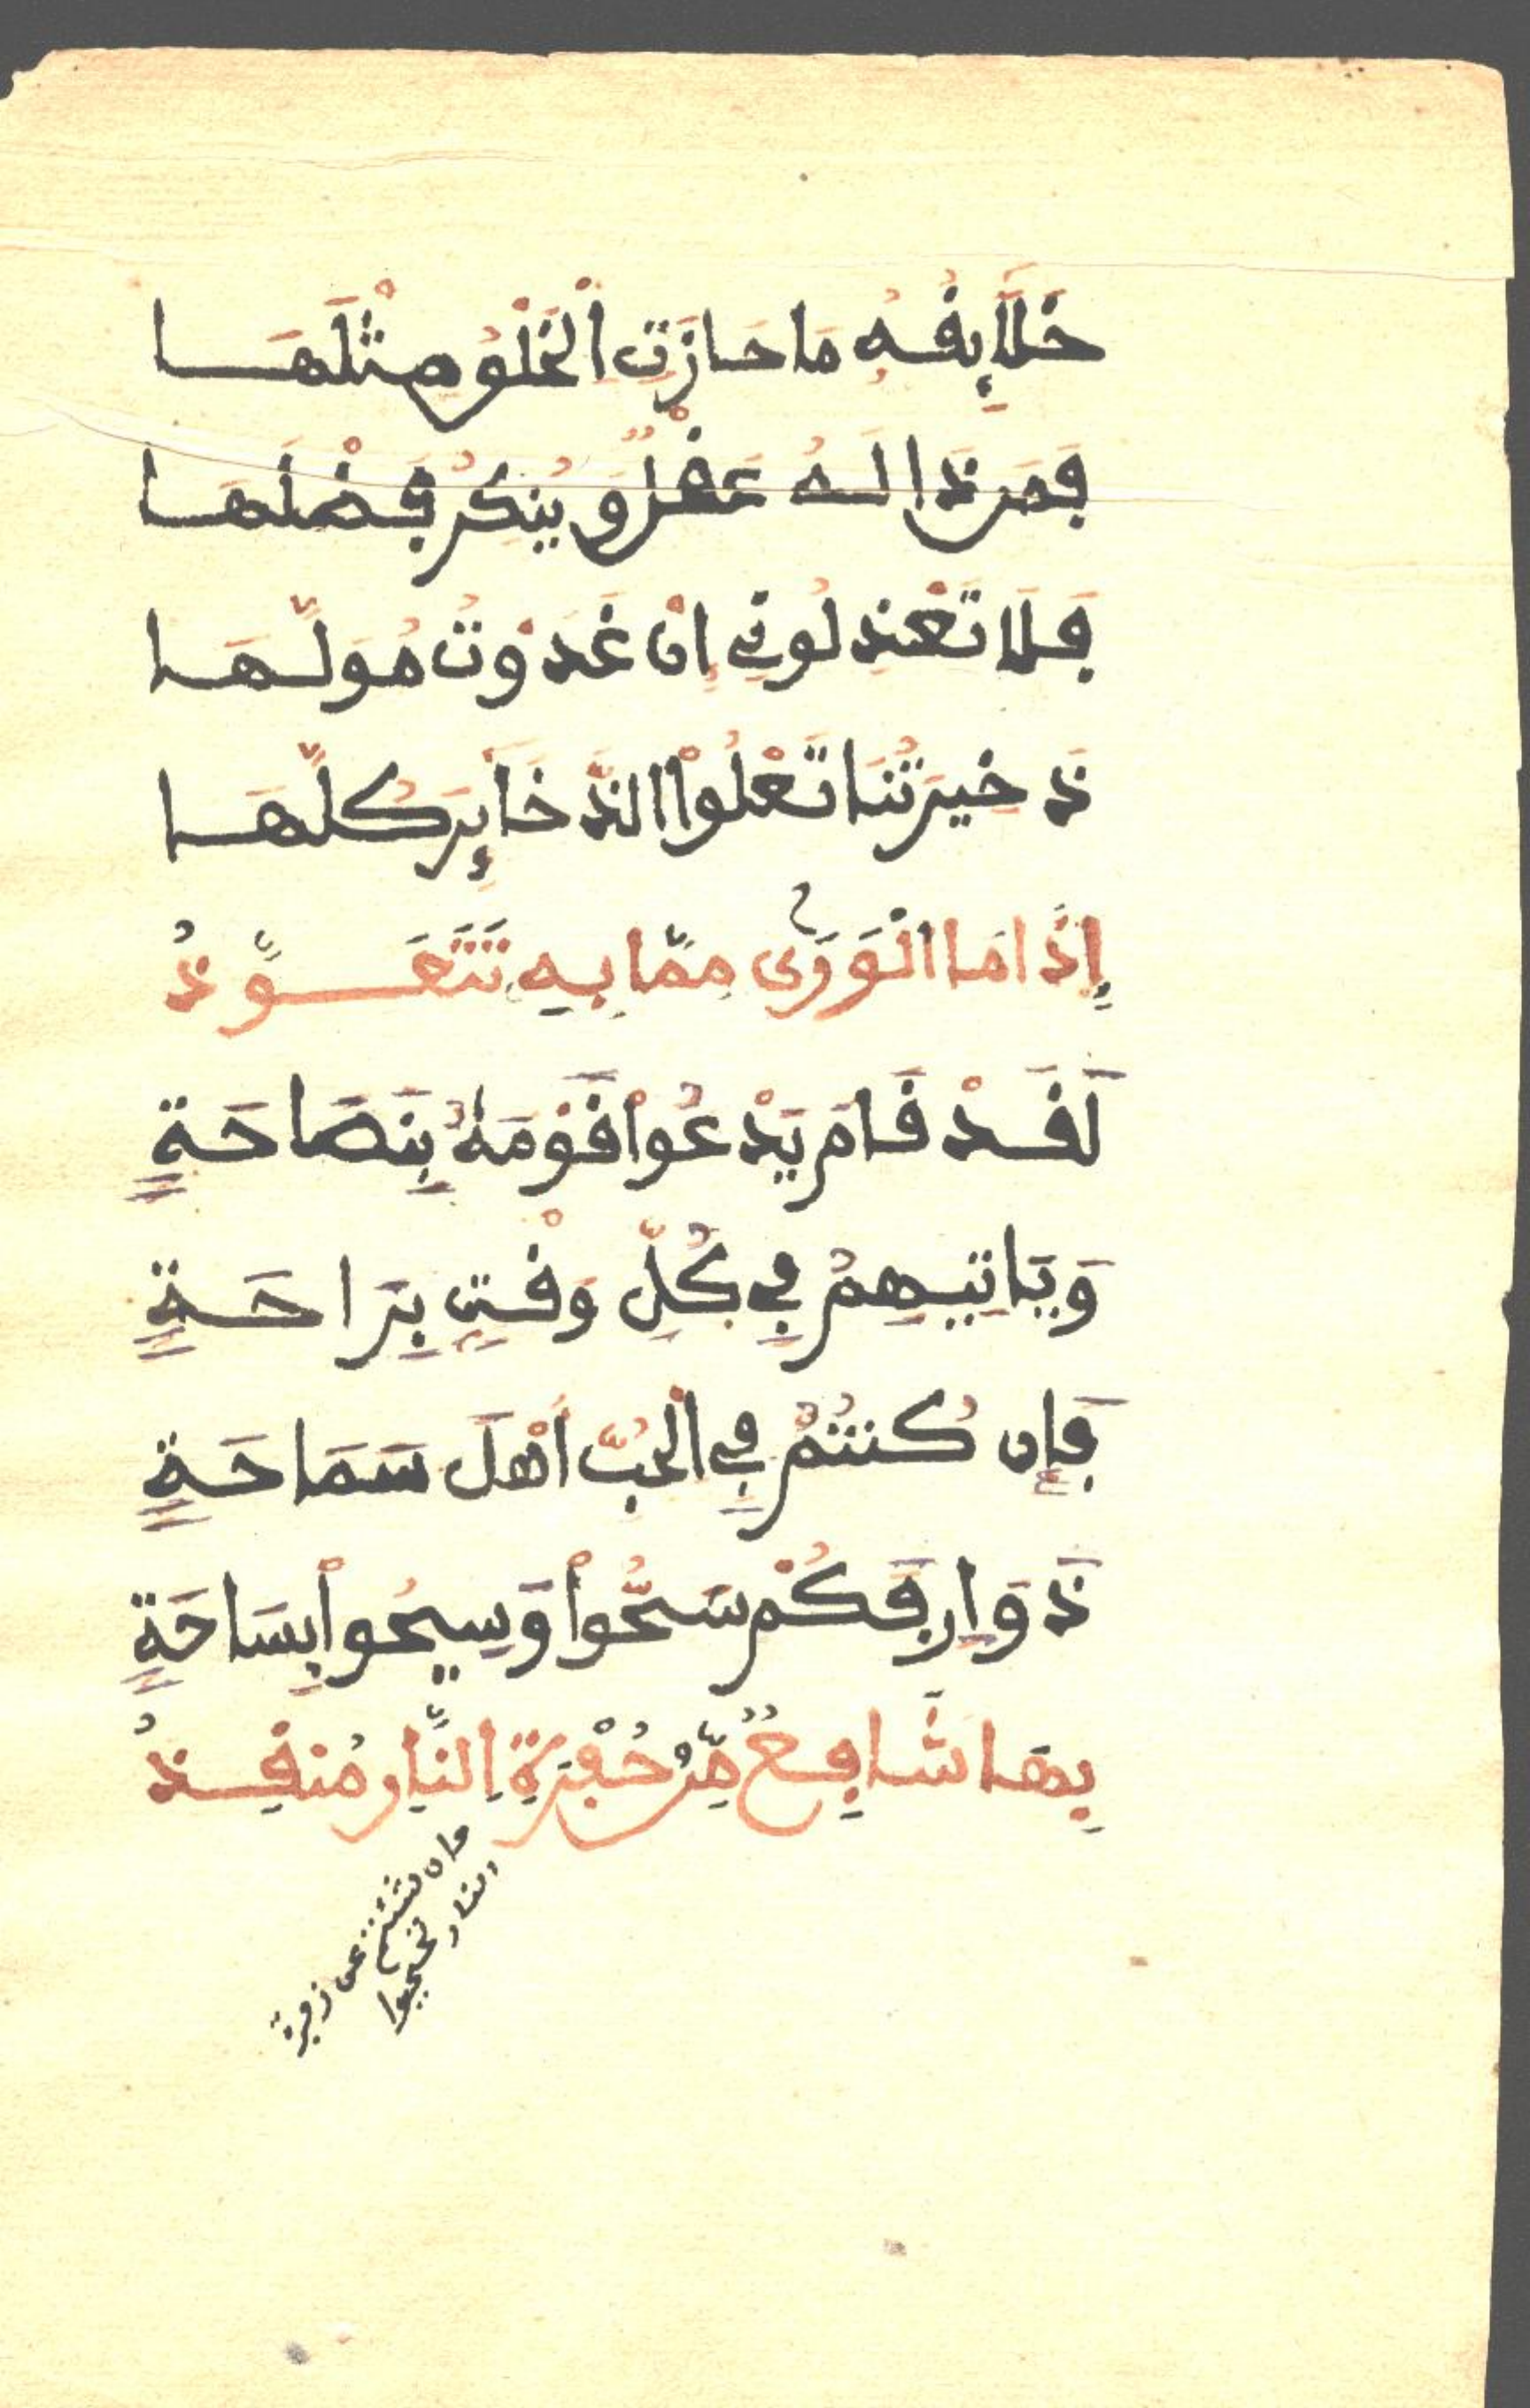 خَلَآئِقُهُ مَا حَازَتِ اِ۬لْخَلْقُ مِثْلَهَا
فَمَن ذَا لَهُ عَقْلٌ وَيُنكِرُ فَضْلَهَا
فَلَا تَعْذِلُونِي إِنْ غَدَوْتُ مُوَلَّهَا
ذَخِيرَتُنَا تَعْلُواْ الذَّخَآئِرَ كُلَّهَا
إِذَا مَا الْوَرَى مِمَّا بِهِ تَتَعَوَّذُ
لَقَدْ قَامَ يَدْعُواْ قَوْمَهُ بِنَصَاحَةٍ
وَيَاتِيهِمُ فِي كُلِّ وَقْتٍ بِرَاحَةٍ
فَإِن كُنتُمُ فِي الْحُبِّ أَهْلَ سَمَاحَةٍ
ذَوَارِفَكُمْ سَحُّواْ وَسِيحُواْ بِسَاحَةٍ
بِهَا شَافِعٌ مِّنْ حُفْرَةِ اِ۬لنَّارِ مُنقِذُ
وان شئتم عن زفرة
النار